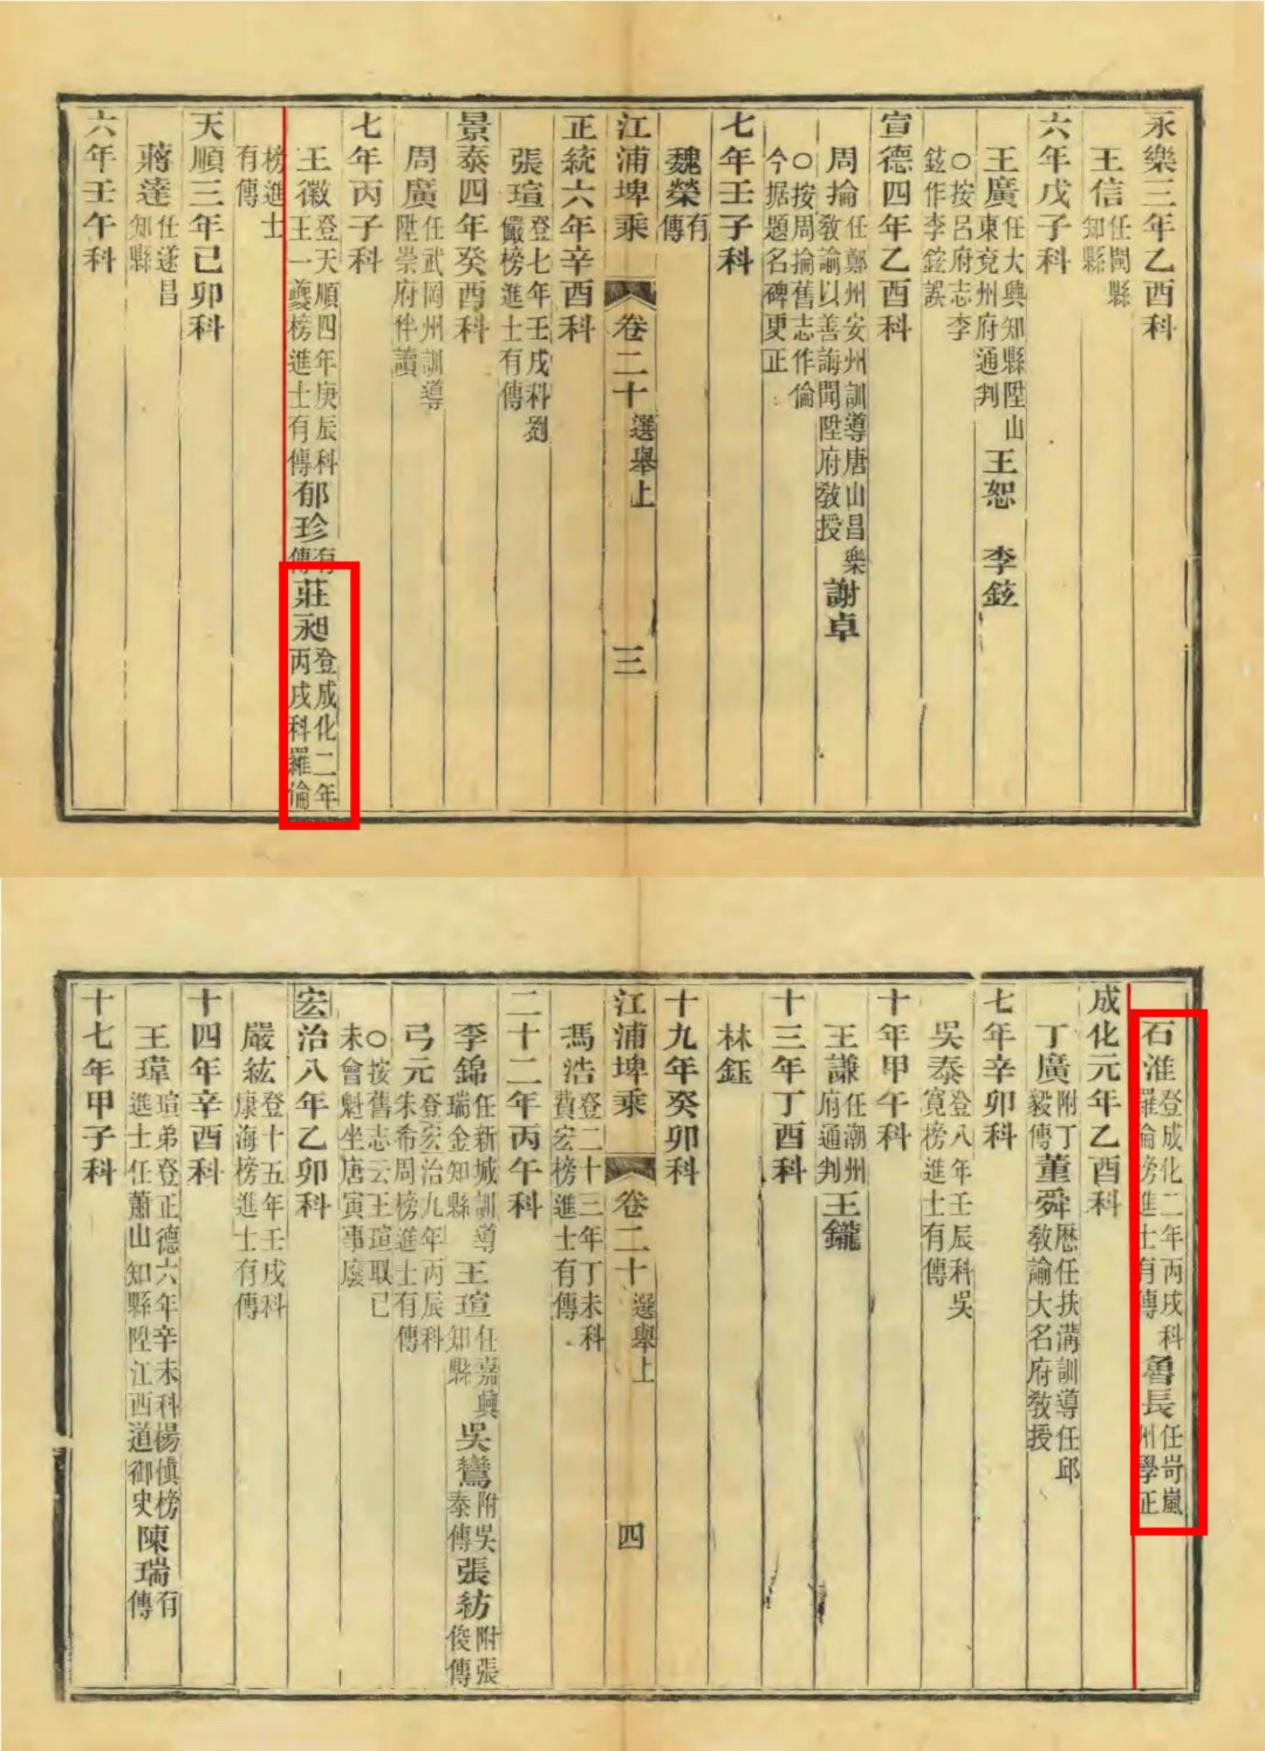 永樂三年乙酉科
王信任閩縣知縣
六年戊子科
王廣任大興知縣陞山東兗州府通判 王恕 李鉉
○按呂府志李鉉作李鋐誤
宣德四年乙酉科
周掄任鄭州安州訓導唐山昌樂教諭以善誨聞陞府教授 謝卓
○按周掄舊志作倫今据題名碑更正
七年壬子科
魏榮有傳
江浦埤乘 卷二十 選舉上 三
正統六年辛酉科
張瑄登七年壬戌科劉儼榜進士有傳
景泰四年癸酉科
周廣任武岡州訓導陞崇府伴讀
七年丙子科
王徽登天順四年庚辰科王一夔榜進士有傳 郁珍有傳 莊昶登成化二年丙戌科羅倫
榜進士有傳
天順三年己卯科
蔣達任遂昌知縣
六年壬午科
石淮登成化二年丙戌科羅倫榜進士有傳 魯長任岢嵐州學正
成化元年乙酉科
丁廣附丁毅傳 董舜歷任扶溝訓導任邱教諭大名府教授
七年辛卯科
吳泰登八年壬辰科吳寬榜進士有傳
十年甲午科
王謙任潮州府通判 王鑨
十三年丁酉科
林鈺
十九年癸卯科
江浦埤乘 卷二十 選舉上 四
馮浩登二十三年丁未科費宏榜進士有傳
二十二年丙午科
李錦任新城訓導瑞金知縣 王瑄任嘉興知縣 吳鸞附吳泰傳 張紡附張俊傳
弓元登宏治九年丙辰科朱希周榜進士有傳
○按舊志云王瑄取已未會魁坐唐寅事廢
宏治八年乙卯科
嚴紘登十五年壬戌科康海榜進士有傳
十四年辛酉科
王瑋瑄弟登正德六年辛未科楊慎榜進士任蕭山知縣陞江西道御史 陳瑞有傳
十七年甲子科